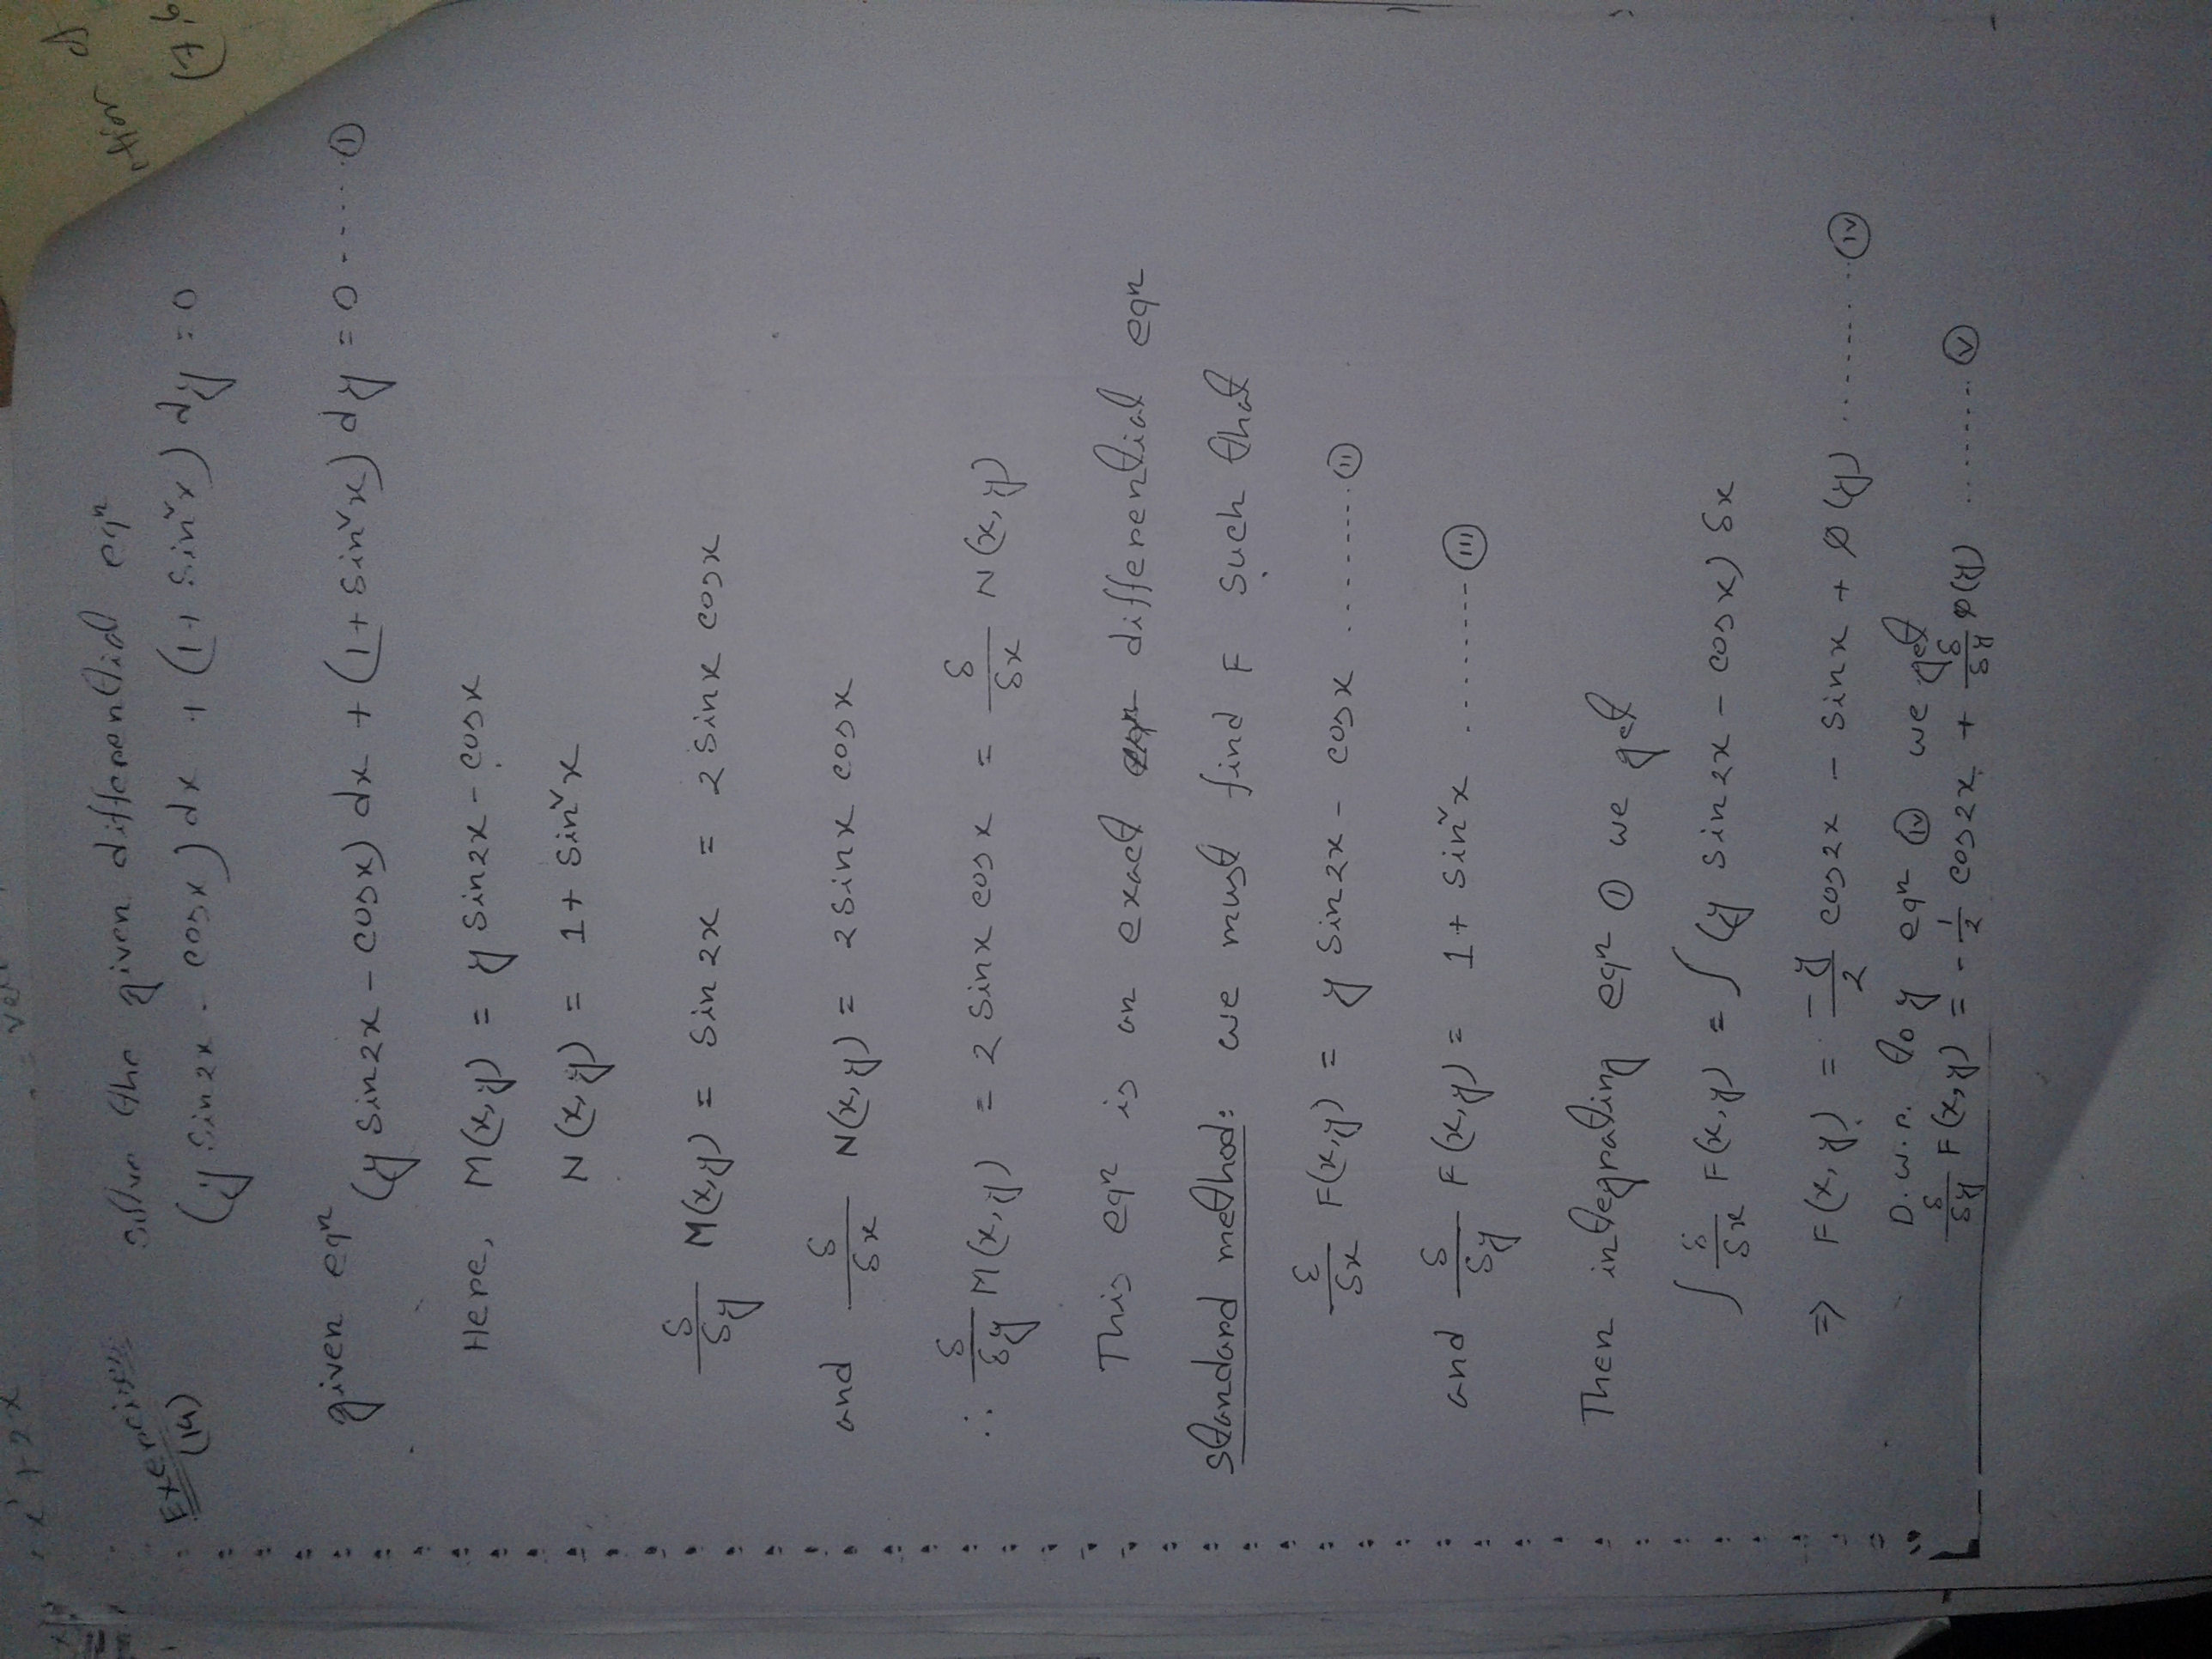 x² + 2x
Exercises
(14)
solve the given differential eqⁿ
(y sin2x - cosx) dx + (1 + sin²x) dy = 0
given eqⁿ
(y sin2x - cosx) dx + (1 + sin²x) dy = 0 ----- ①
Here, M(x,y) = y sin2x - cosx
N(x,y) = 1 + sin²x
δ/δy M(x,y) = sin 2x = 2 sinx cosx
and δ/δx N(x,y) = 2 sinx cosx
∴ δ/δy M(x,y) = 2 sinx cosx = δ/δx N(x,y)
This eqⁿ is an exact differential eqn
standard method: we must find F such that
δ/δx F(x,y) = y sin2x - cosx ........ ⑪
and δ/δy F(x,y) = 1 + sin²x ........ (III)
Then integrating eqⁿ ① we get
∫ δ/δx F(x,y) = ∫ (y sin2x - cosx) δx
⇒ F(x,y) = -y/2 cos2x - sinx + φ(y) ........ (IV)
D.w.r. to y eqⁿ (IV) we get
δ/δy F(x,y) = -1/2 cos2x + δ/δy φ(y) ....... (V)